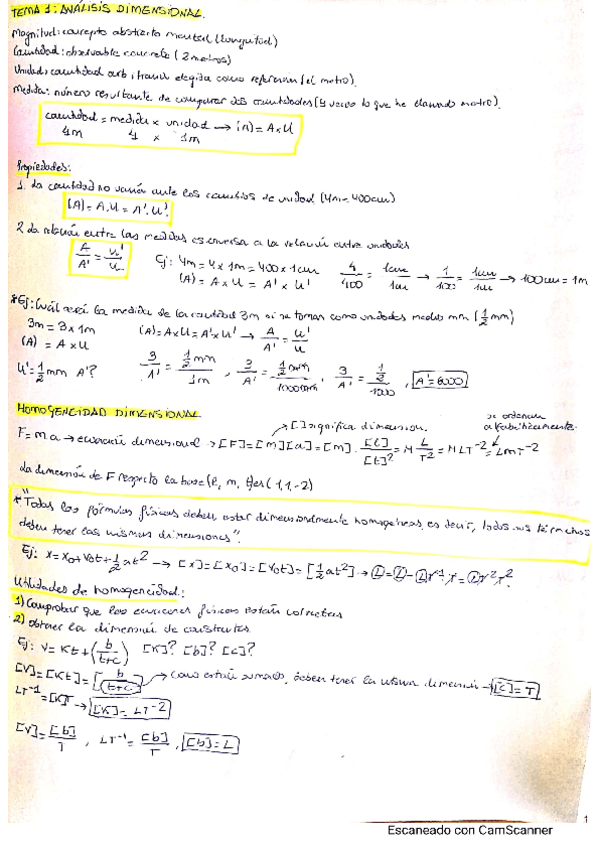 TEMA 1: ANÁLISIS DIMENSIONAL.
Magnitud: concepto abstracto mental (longitud)
Cantidad: observable concreto (2 metros)
Unidad: cantidad arbitraria elegida como referencia (el metro).
Medida: número resultante de comparar dos cantidades (4 veces lo que he llamado metro).
cantidad = medida x unidad → (A) = A x U
4m 4 x 1m
Propiedades:
1. La cantidad no varía ante los cambios de unidad (4m = 400cm)
(A) = A.U = A'.U'
2 La relación entre las medidas es inversa a la relación entre unidades
A/A' = U'/U Ej: 4m = 4 x 1m = 400 x 1cm 4/400 = 1cm/1m → 1/100 = 1cm/1m → 100cm = 1m
(A) = A x U = A' x U'
*Ej: Cuál será la medida de la cantidad 3m si se toman como unidades medios mm (1/2 mm)
3m = 3 x 1m (A) = A x U = A' x U' → A/A' = U'/U
(A) = A x U
U' = 1/2 mm A'? 3/A' = 1/2 mm/1m , 3/A' = 1/2 mm/1000mm , 3/A' = 1/2/1000 , A' = 6000
HOMOGENEIDAD DIMENSIONAL
→ [ ] significa dimension. se ordenan alfabéticamente.
F = m a → ecuación dimensional → [F] = [m][a] = [m] . [l]/[t]² = M L/T² = MLT⁻² = LMT⁻²
La dimensión de F respecto la base {l, m, t} es (1, 1, -2)
*"Todas las fórmulas físicas deben estar dimensionalmente homogéneas, es decir, todos sus términos
deben tener las mismas dimensiones".
Ej: x = x₀ + v₀t + 1/2 at² → [x] = [x₀] = [v₀t] = [1/2 at²] → L = L = LT⁻¹T = LT⁻²T²
Utilidades de homogeneidad:
1) Comprobar que las ecuaciones físicas están correctas
2) obtener la dimensión de constantes
Ej: v = Kt + (b/t+c) [K]? [b]? [c]?
[v] = [Kt] = [b/t+c] → Como están sumando, deben tener la misma dimensión → [c] = T
LT⁻¹ = [K]T → [K] = LT⁻²
[v] = [b]/T , LT⁻¹ = [b]/T , [b] = L
1
Escaneado con CamScanner